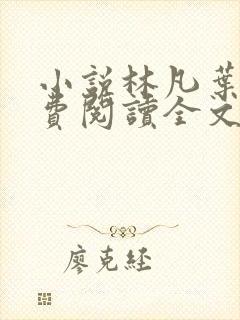 小説林凡葉
費閱讀全文
廖克經